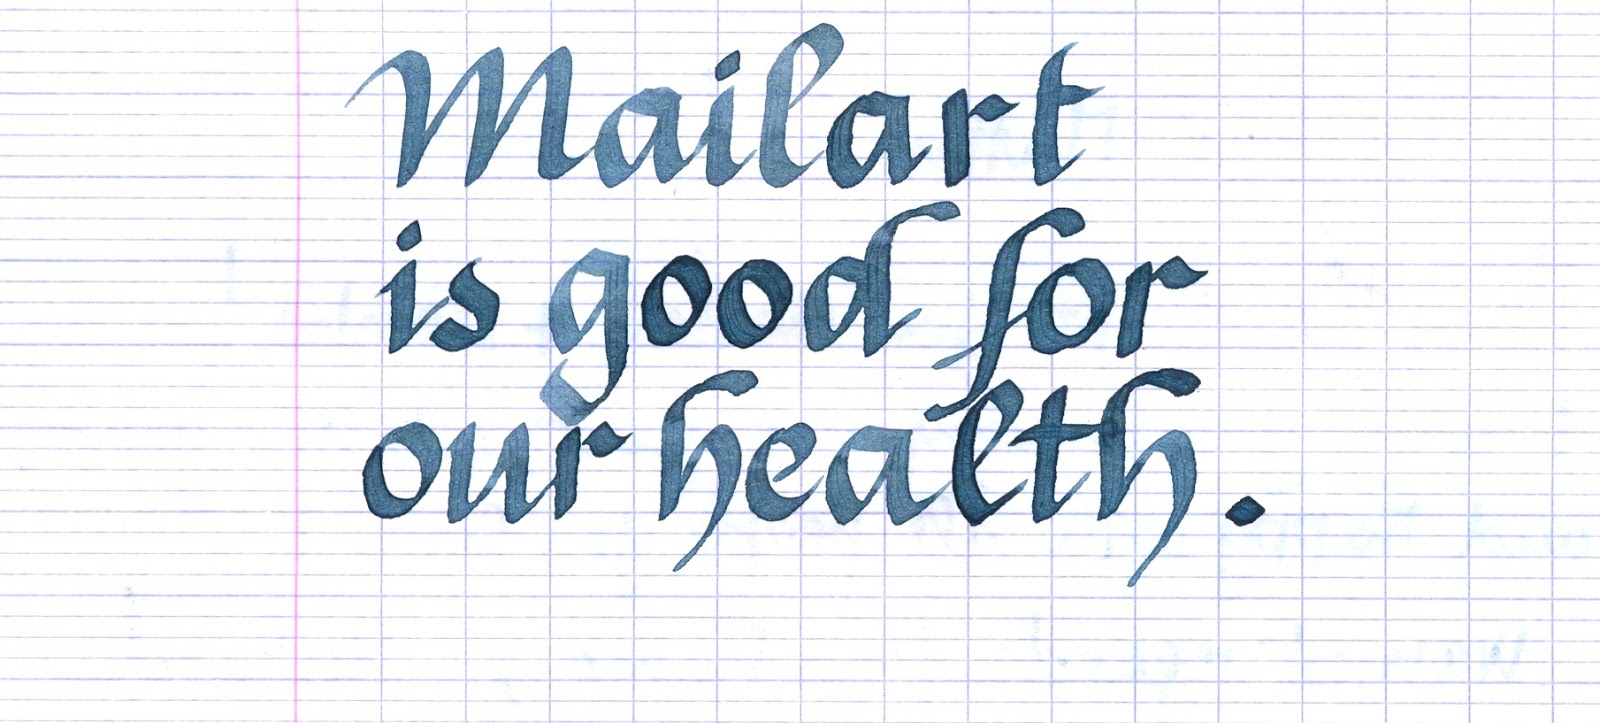 Mailart
is good for
our health.